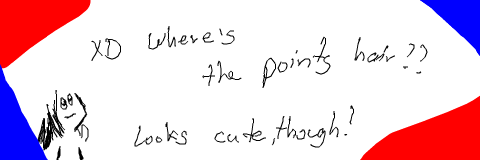 XD Where's
the points hair??
Looks cute, though!